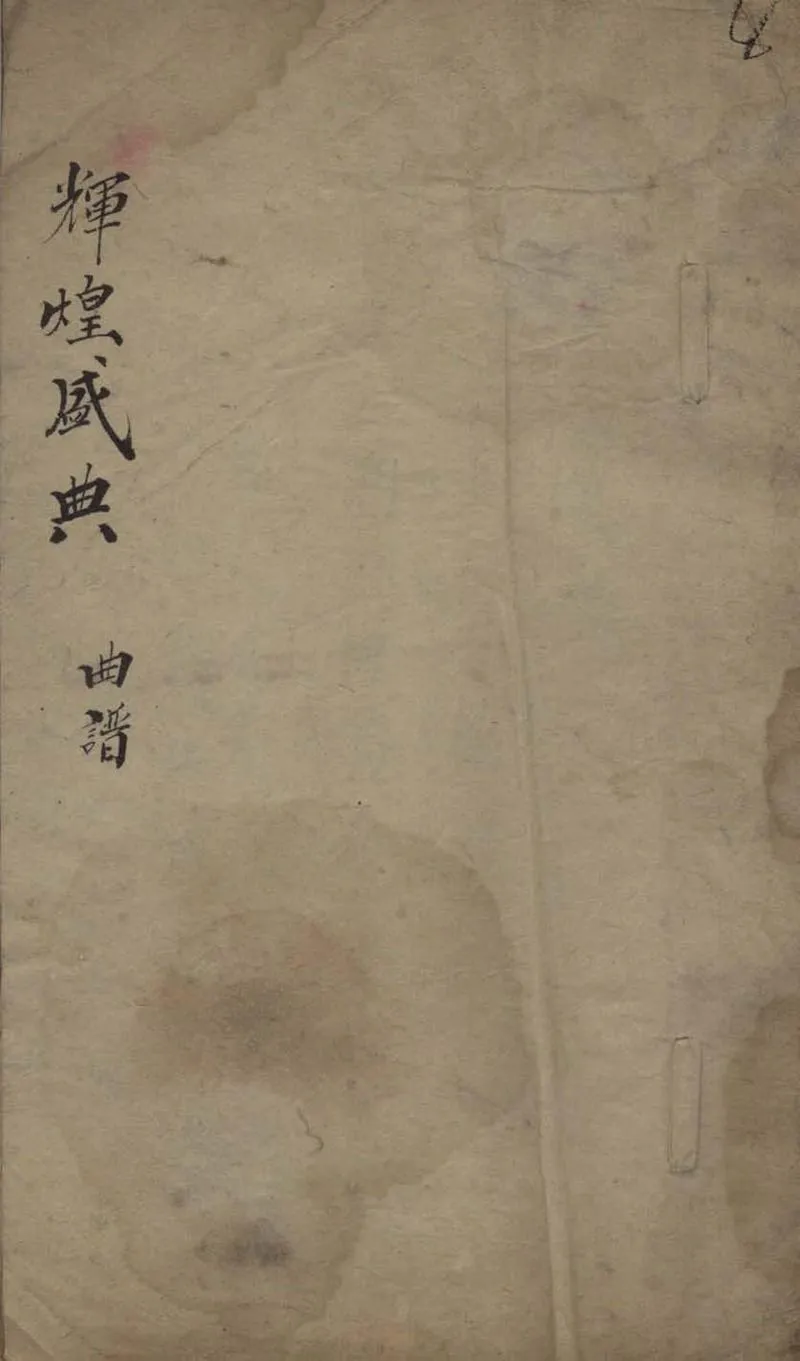 輝煌盛典
曲譜